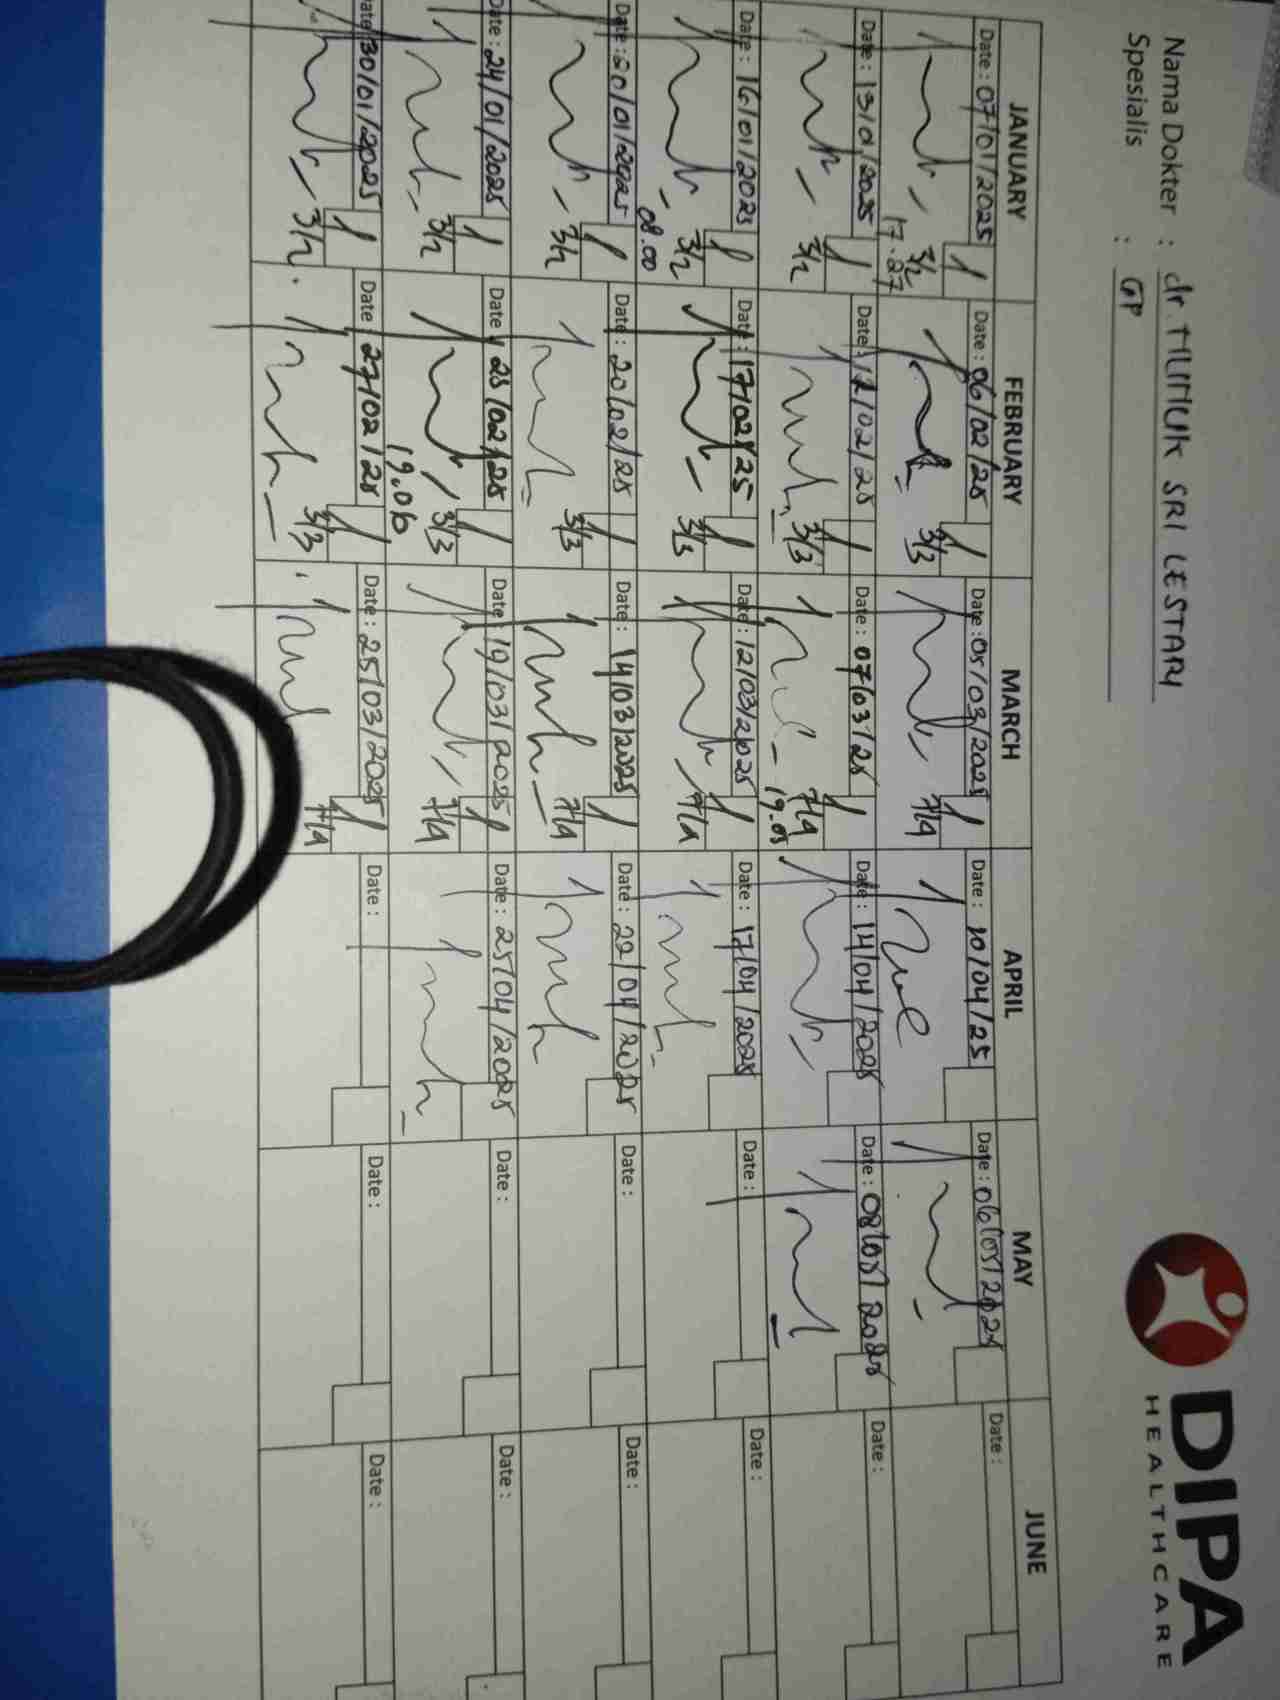 Nama Dokter : dr. TILIMUK SRI LESTARI
Spesialis : GP
DIPA
HEALTHCARE
JANUARY FEBRUARY MARCH APRIL MAY JUNE
Date : 07/01/2025 Date : 06/02/25 Date : 05/03/2025 Date : 10/04/25 Date : 06/05/2025 Date :
3/2 3/3 7/4
17.27
Date : 13/01/2025 Date : 12/02/25 Date : 07/03/25 Date : 14/04/2025 Date : 08/05/2025 Date :
3/2 3/3 7/4
19.05
Date : 16/01/2025 Date : 17/02/25 Date : 12/03/2025 Date : 17/04/2025 Date : Date :
3/2 3/3 7/4
08.00
Date : 20/01/2025 Date : 20/02/25 Date : 14/03/2025 Date : 22/04/2025 Date : Date :
3/2 3/3 7/4
Date : 24/01/2025 Date : 25/02/25 Date : 19/03/2025 Date : 25/04/2025 Date : Date :
3/2 3/3 7/4
19.06
Date 30/01/2025 Date : 27/02/25 Date : 25/03/2025 Date : Date : Date :
3/2 3/3 7/4